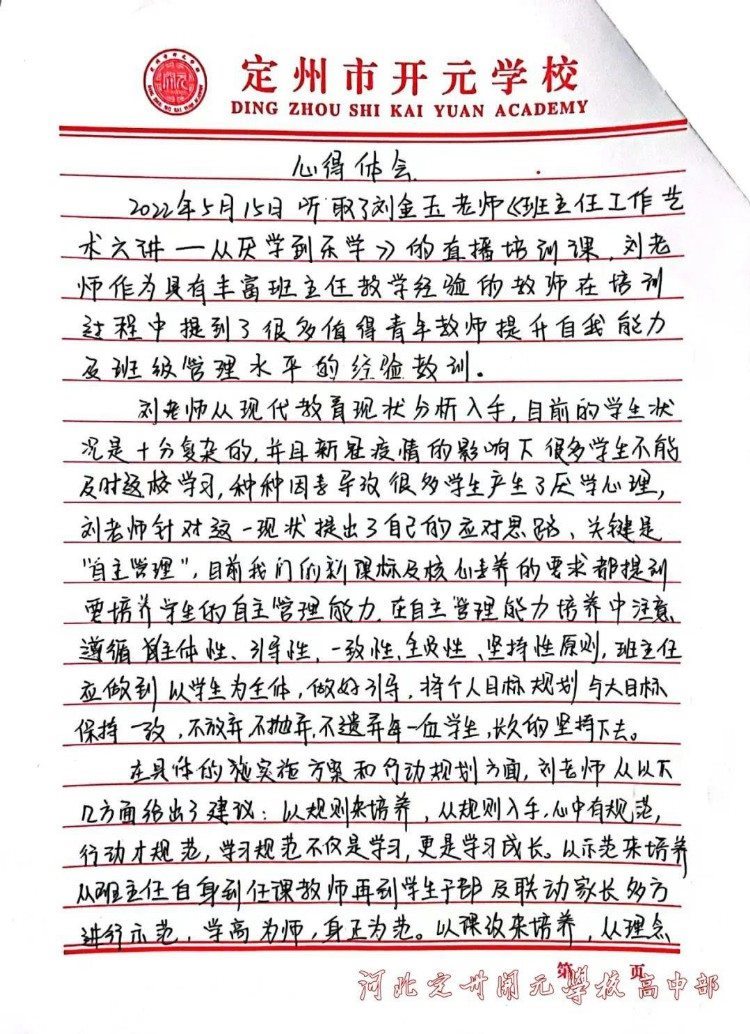 定州市开元学校
DING ZHOU SHI KAI YUAN ACADEMY
心得体会
2022年5月15日 听取了刘金玉老师《班主任工作艺
术六讲——从厌学到乐学》的直播培训课，刘老
师作为具有丰富班主任教学经验的教师在培训
过程中提到了很多值得青年教师提升自我能力
及班级管理水平的经验教训。
刘老师从现代教育现状分析入手，目前的学生状
况是十分复杂的，并且新冠疫情的影响下很多学生不能
及时返校学习，种种因素导致很多学生产生了厌学心理，
刘老师针对这一现状提出了自己的应对思路、关键是
“自主管理”，目前我们的新课标及核心素养的要求都提到
要培养学生的自主管理能力，在自主管理能力培养中注意
遵循主体性、引导性、一致性、全员性、坚持性原则，班主任
应做到以学生为主体，做好引导，将个人目标规划与大目标
保持一致，不放弃、不抛弃、不遗弃每一位学生，长久的坚持下去。
在具体的实施方案和行动规划方面，刘老师从以下
几方面给出了建议：以规则来培养，从规则入手，心中有规范，
行动才规范，学习规范不仅是学习，更是学习成长。以示范来培养
从班主任自身到任课教师再到学生干部及联动家长多方
进行示范，学高为师，身正为范。以课改来培养，从理念
第 页
河北定州開元學校高中部